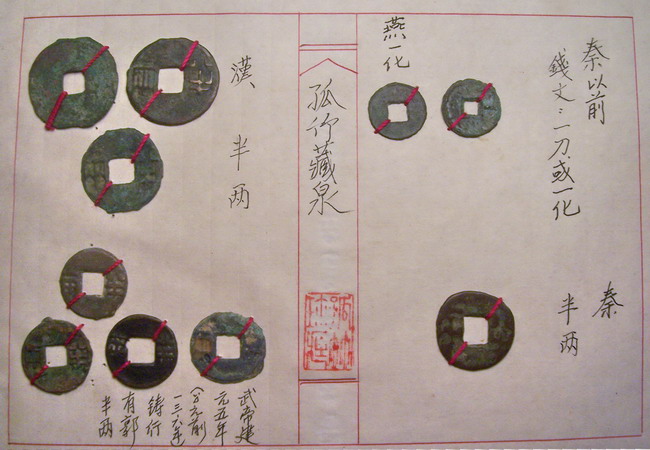 秦以前
錢文:一刀或一化
燕一化
秦
半两
孤竹藏泉
漢
半两
武帝建
元五年
(公元前
一三六年)
鋳行
有郭
半两